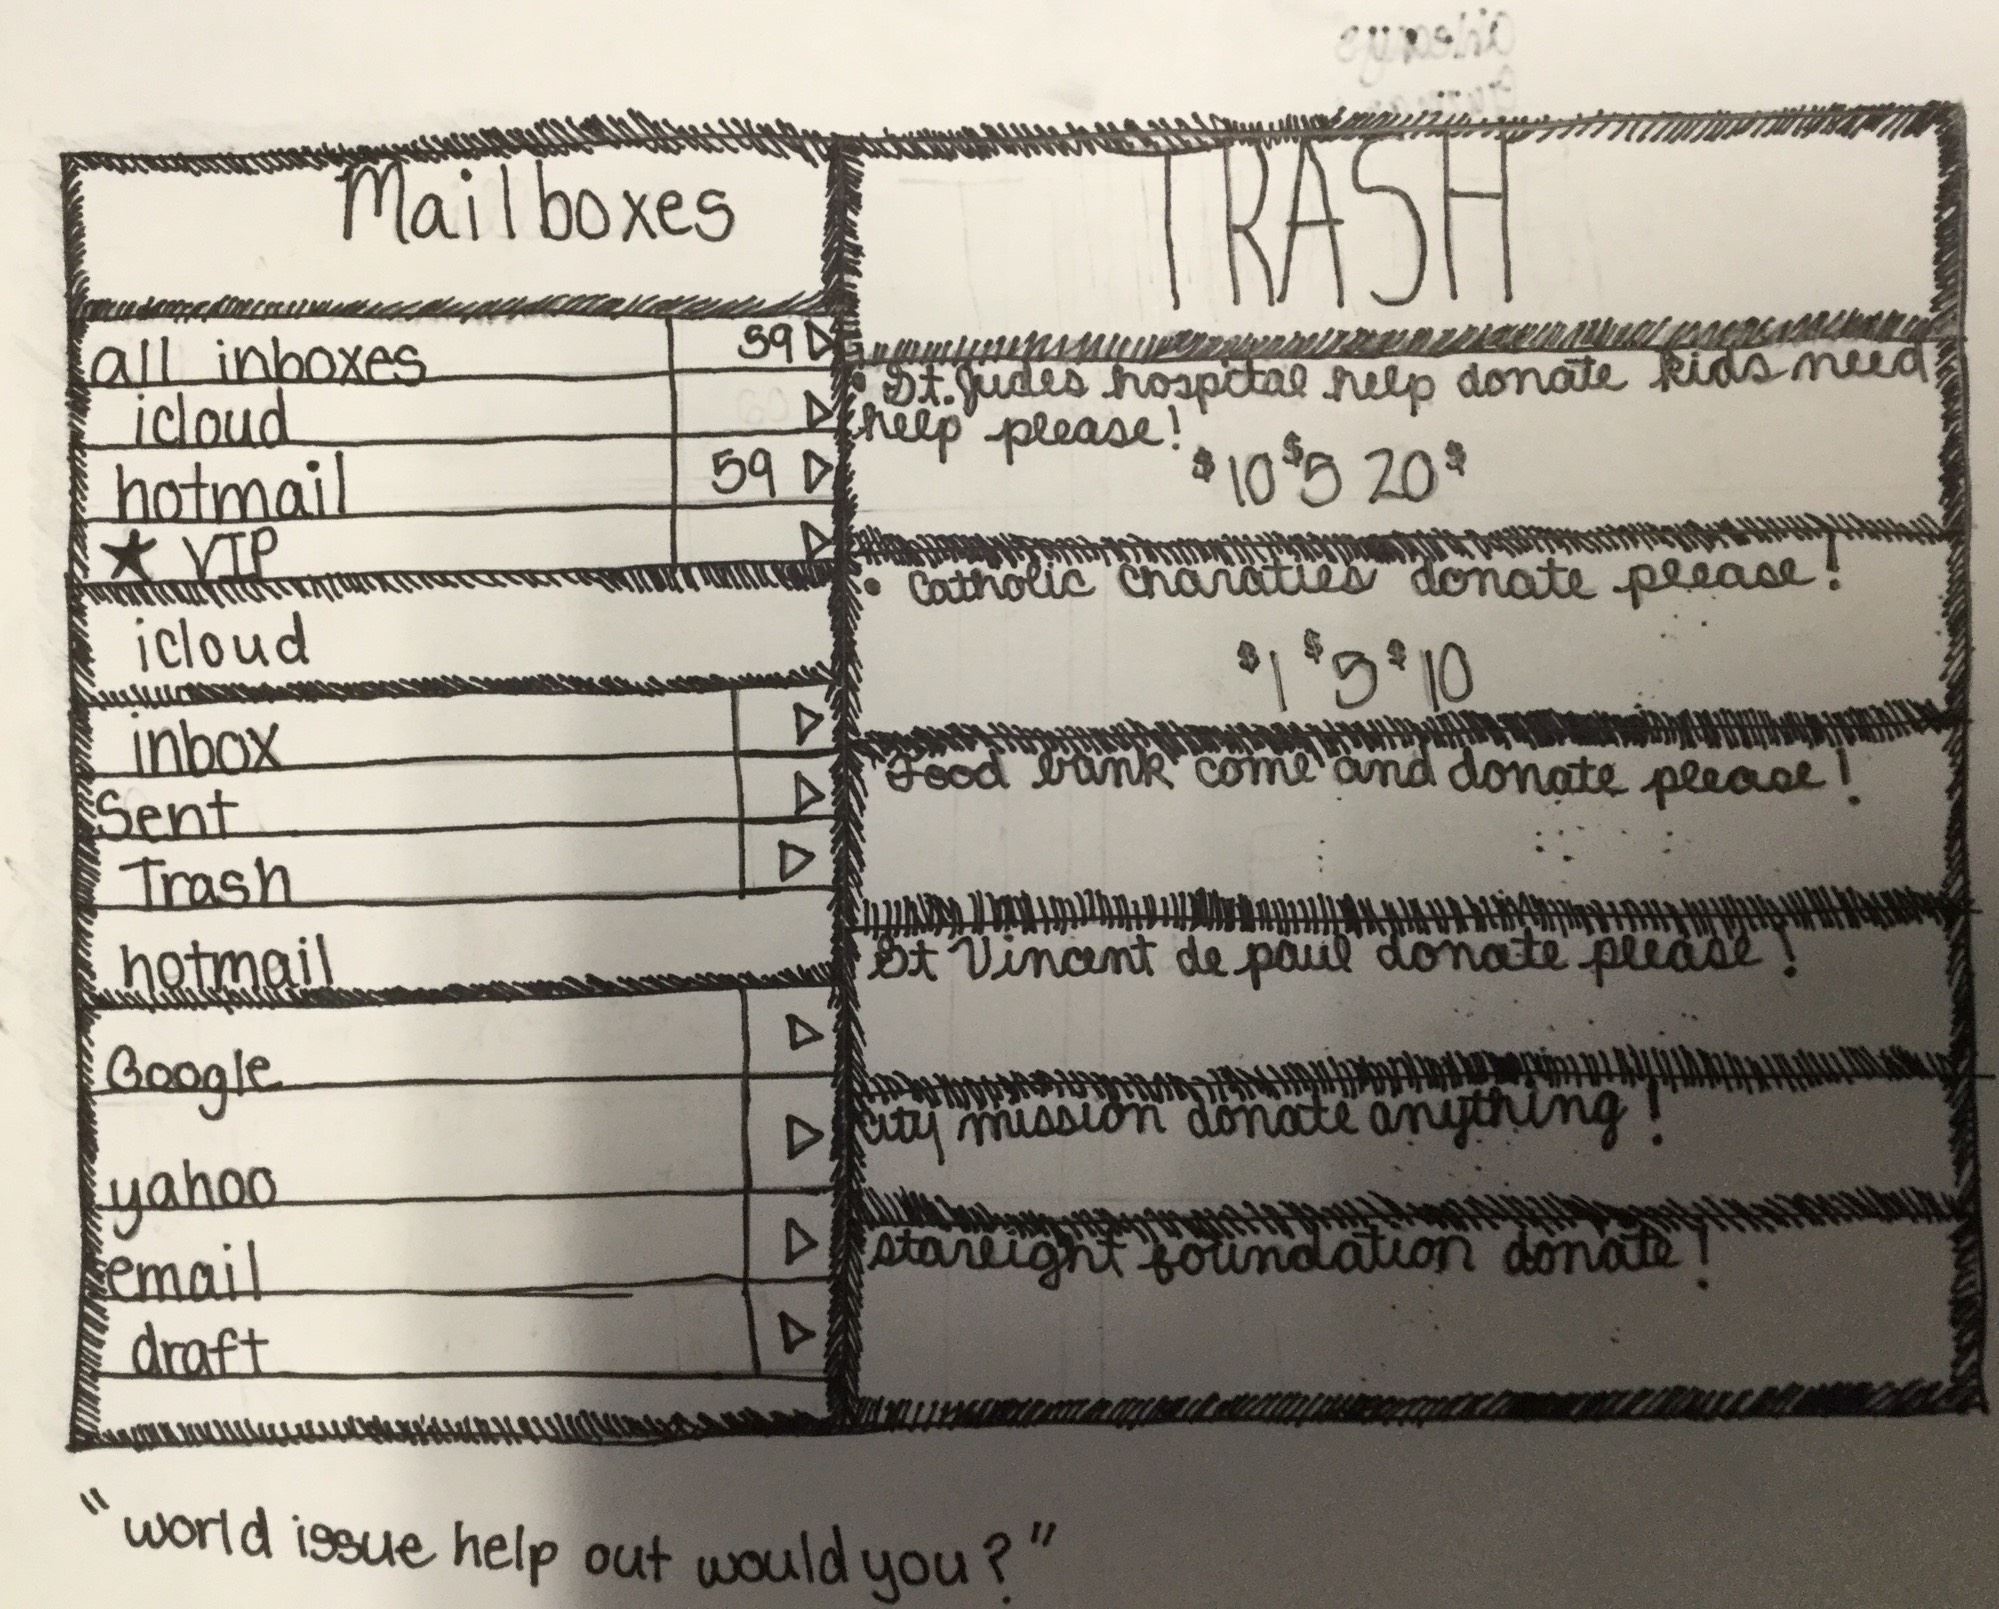 Mailboxes
all inboxes 59
icloud
hotmail 59
★ VIP
icloud
inbox
Sent
Trash
hotmail
Google
yahoo
email
draft
TRASH
• St. Judes hospital help donate kids need
help please!
$10 $5 20$
• Catholic Charaties donate please!
$1 $5 $10
Food bank come and donate please!
St Vincent de paul donate please!
city mission donate anything!
stareight foundation donate!
"world issue help out would you?"